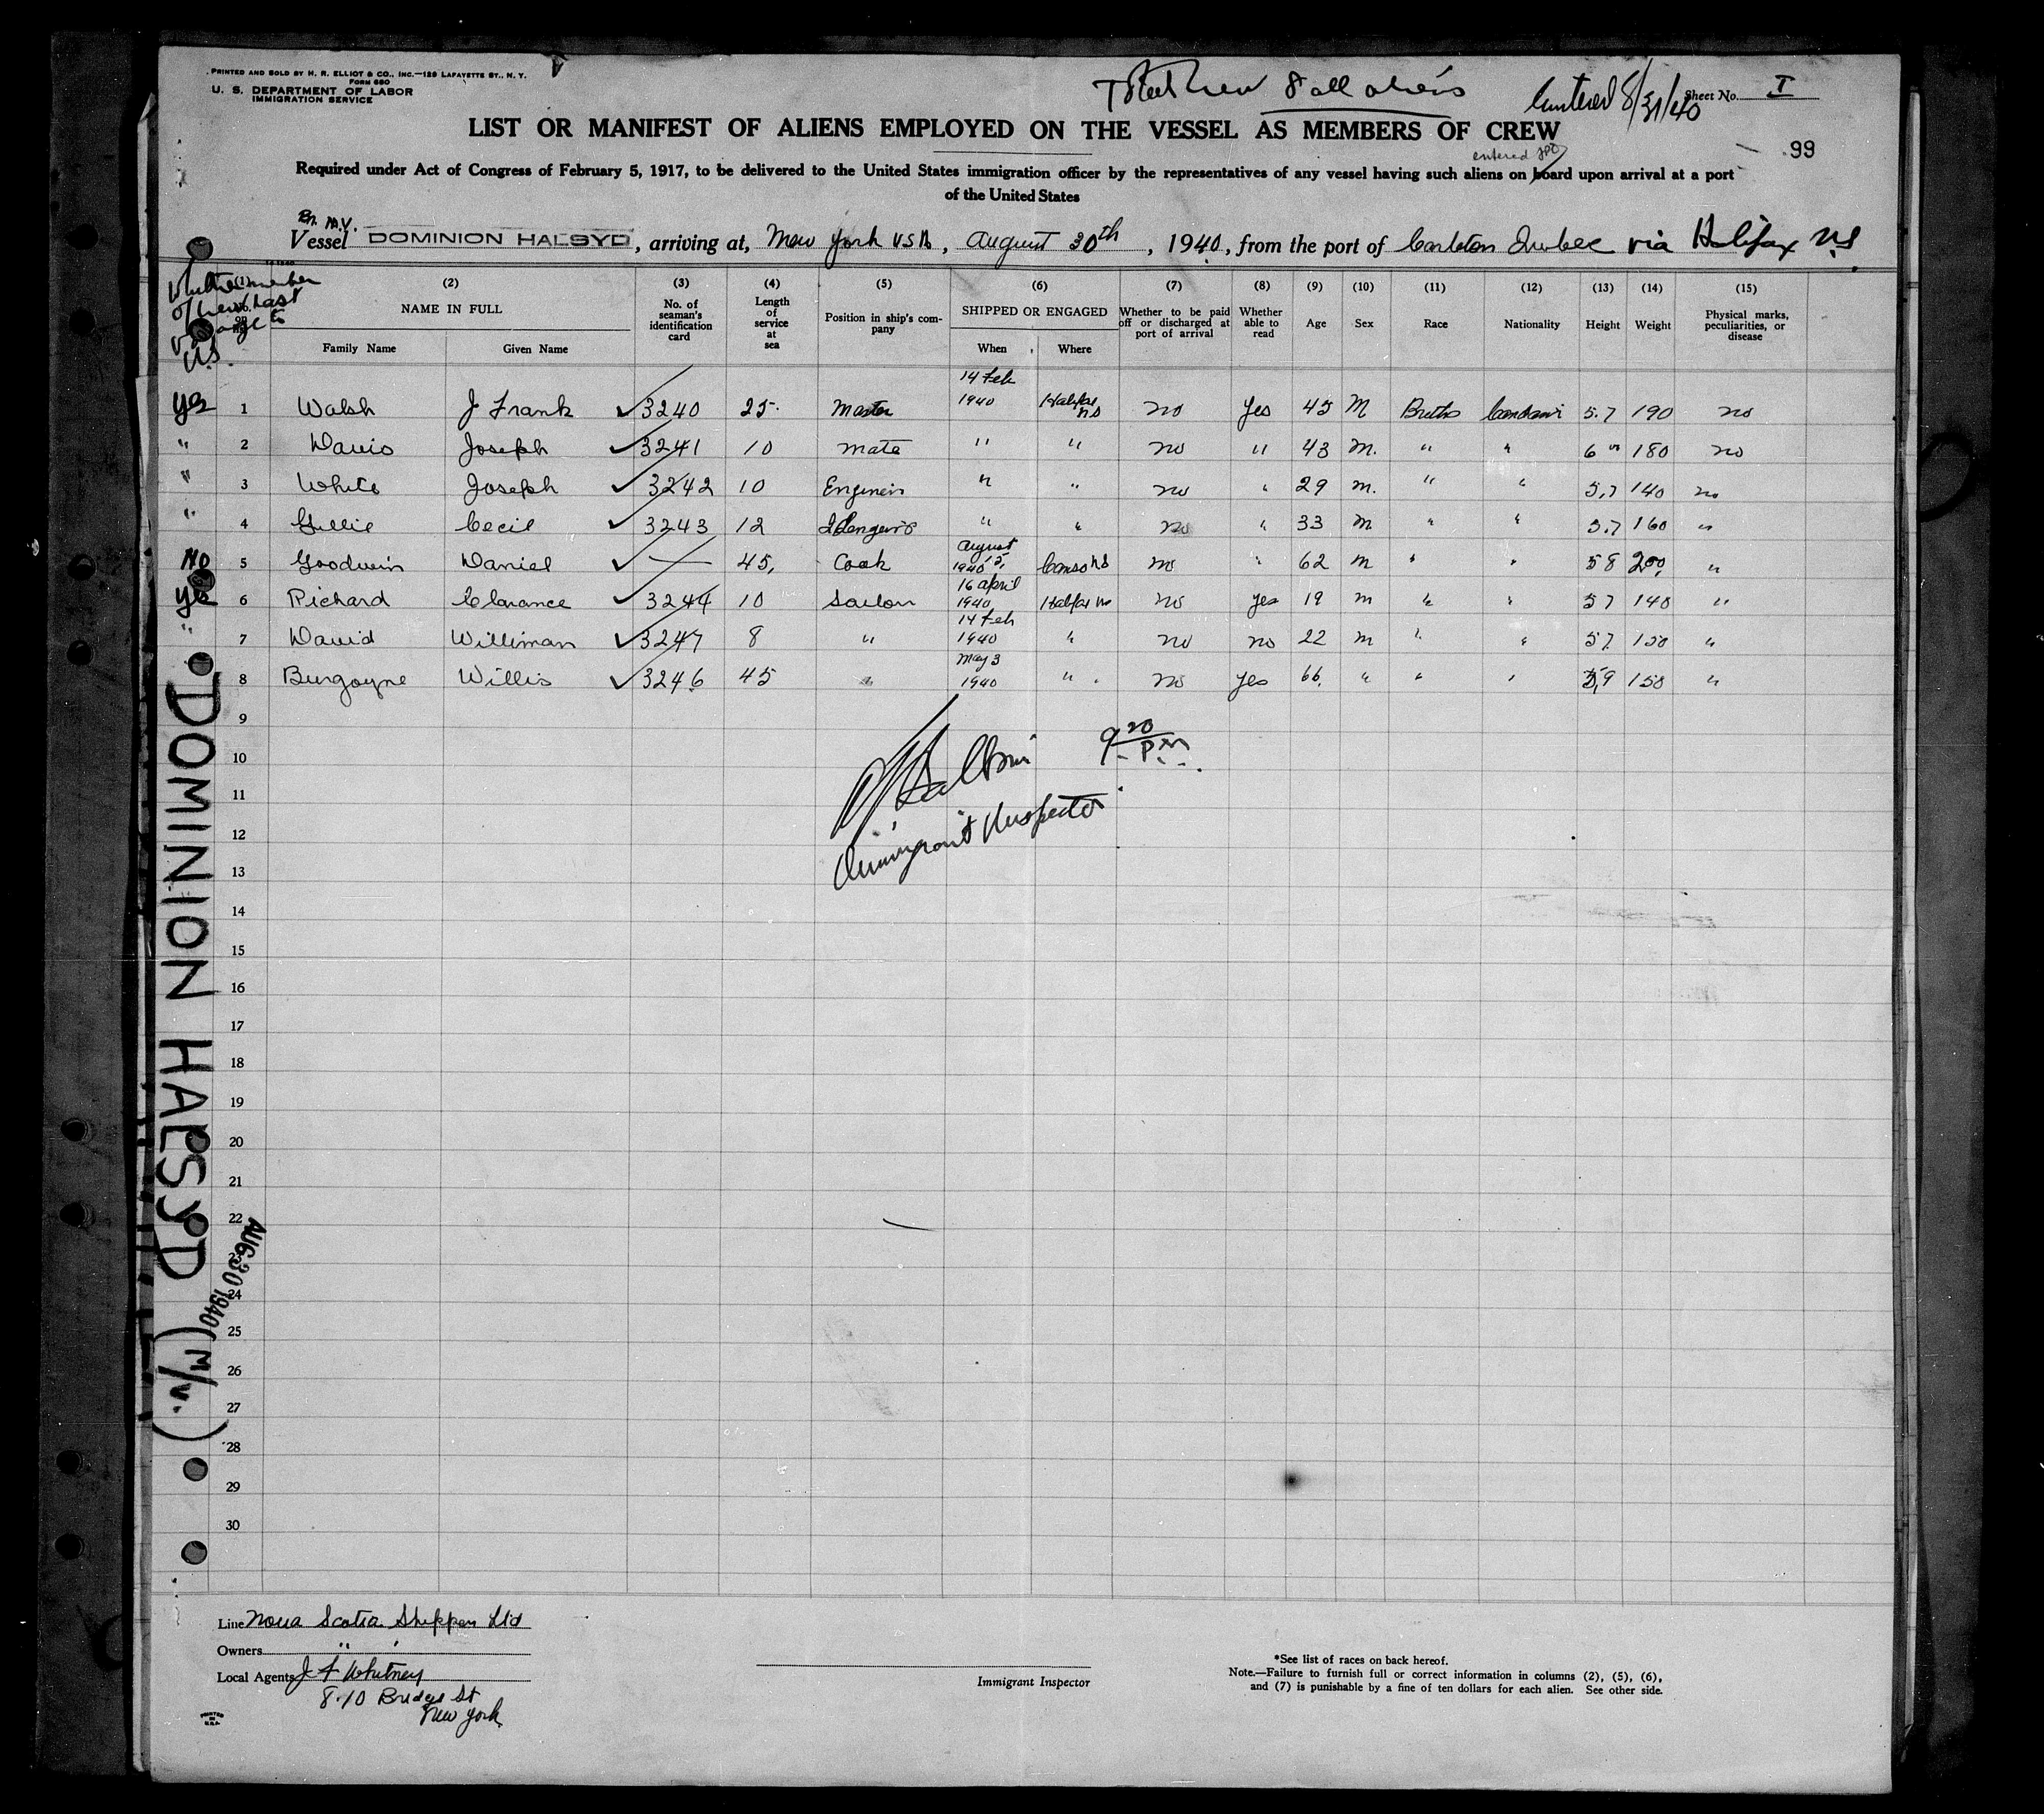 PRINTED AND SOLD BY H. R. ELLIOT & CO., INC.—129 LAFAYETTE ST., N. Y.
FORM 680
U. S. DEPARTMENT OF LABOR
IMMIGRATION SERVICE
Total Crew 8 all aliens
Sheet No. I
8/31/40
LIST OR MANIFEST OF ALIENS EMPLOYED ON THE VESSEL AS MEMBERS OF CREW
99
entered
Required under Act of Congress of February 5, 1917, to be delivered to the United States immigration officer by the representatives of any vessel having such aliens on board upon arrival at a port
of the United States
Br. M.V.
Vessel DOMINION HALSYD, arriving at, New York USA, August 30th, 1940, from the port of Carleton Quebec via Halifax NS
Whether member of crew last voyage to U.S.
(1) (2) (3) (4) (5) (6) (7) (8) (9) (10) (11) (12) (13) (14) (15)
NAME IN FULL
Family Name Given Name
No. of seaman's identification card
Length of service at sea
Position in ship's company
SHIPPED OR ENGAGED
When Where
Whether to be paid off or discharged at port of arrival
Whether able to read
Age Sex Race Nationality Height Weight
Physical marks, peculiarities, or disease
Yes 1 Walsh J Frank 3240 25 Master 14 Feb 1940 Halifax NS no Yes 45 M 5.7 190 no
" 2 Davis Joseph 3241 10 Mate " " no " 43 M. " " 6 180 no
" 3 White Joseph 3242 10 " " no " 29 m. " " 5,7 140 no
" 4 Gillie Cecil 3243 12 " " no " 33 m " " 5,7 160 "
No 5 Goodwin Daniel — 45, Cook August 1940 Canso NS no " 62 m " " 58 200 "
Yes 6 Richard Clarance 3244 10 Sailor 16 April 1940 Halifax NS no yes 19 m " " 57 140 "
" 7 David Williman 3247 8 " 14 Feb 1940 " no no 22 m " " 57 150 "
8 Burgoyne Willis 3246 45 " May 3 1940 " no yes 66. " " " 5,9 150 "
9
10
11
12
13
14
15
16
17
18
19
20
21
22
23
24
25
26
27
28
29
30
9 20 P.M.
Immigrant Inspector
DOMINION HALSYD (M/V.)
AUG 30 1940
Line Nova Scotia Shippen Ltd
Owners " "
Local Agents J F Whitney
8-10 Bridge St
New York
Immigrant Inspector
*See list of races on back hereof.
Note.—Failure to furnish full or correct information in columns (2), (5), (6),
and (7) is punishable by a fine of ten dollars for each alien. See other side.
PRINTED IN U.S.A.